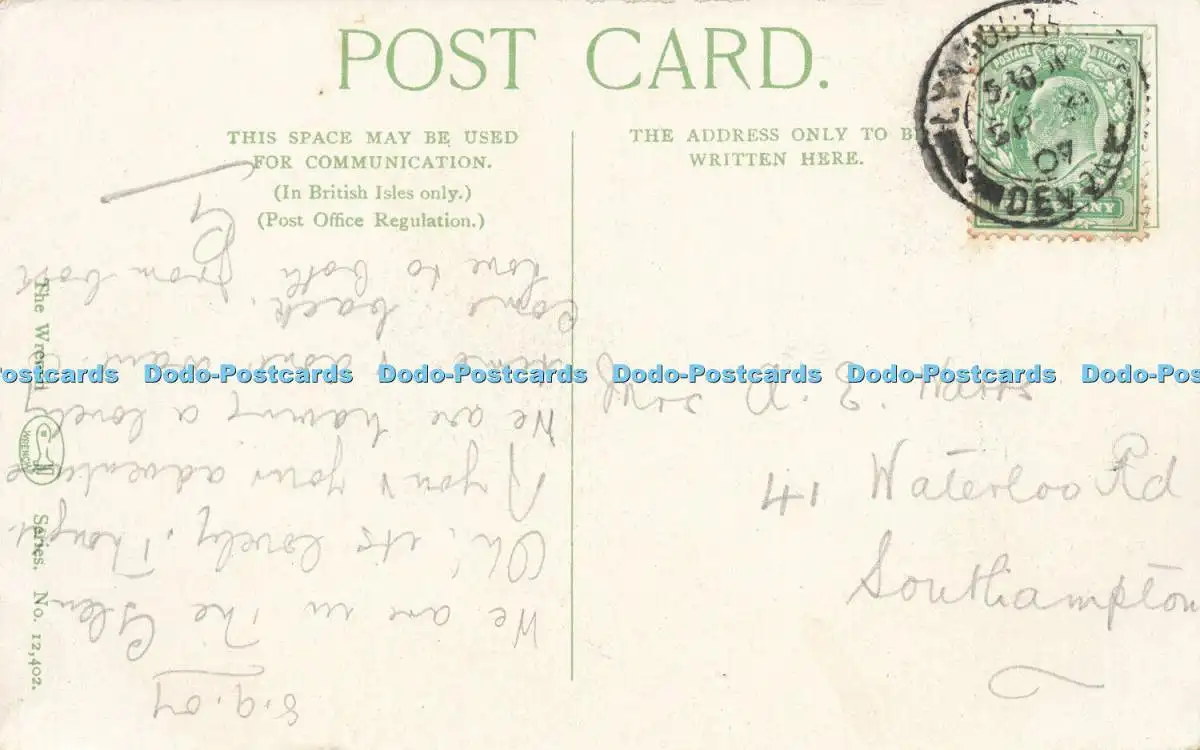 POST CARD.
THIS SPACE MAY BE USED
FOR COMMUNICATION.
(In British Isles only.)
(Post Office Regulation.)
THE ADDRESS ONLY TO BE
WRITTEN HERE.
LYNMOUTH
5.30
SP
07
DEVON
POSTAGE
8.9.07
We are in The Glen
Oh, its lovely, Thought
of you & your adventure
We are having a lovely
time & dont want
come back.
love to both from both
Mrs A. E. Watts
41 Waterloo Rd
Southampton
The Wrench
WRENCH
Series. No. 12,402.
Dodo-Postcards Dodo-Postcards Dodo-Postcards Dodo-Postcards Dodo-Postcards